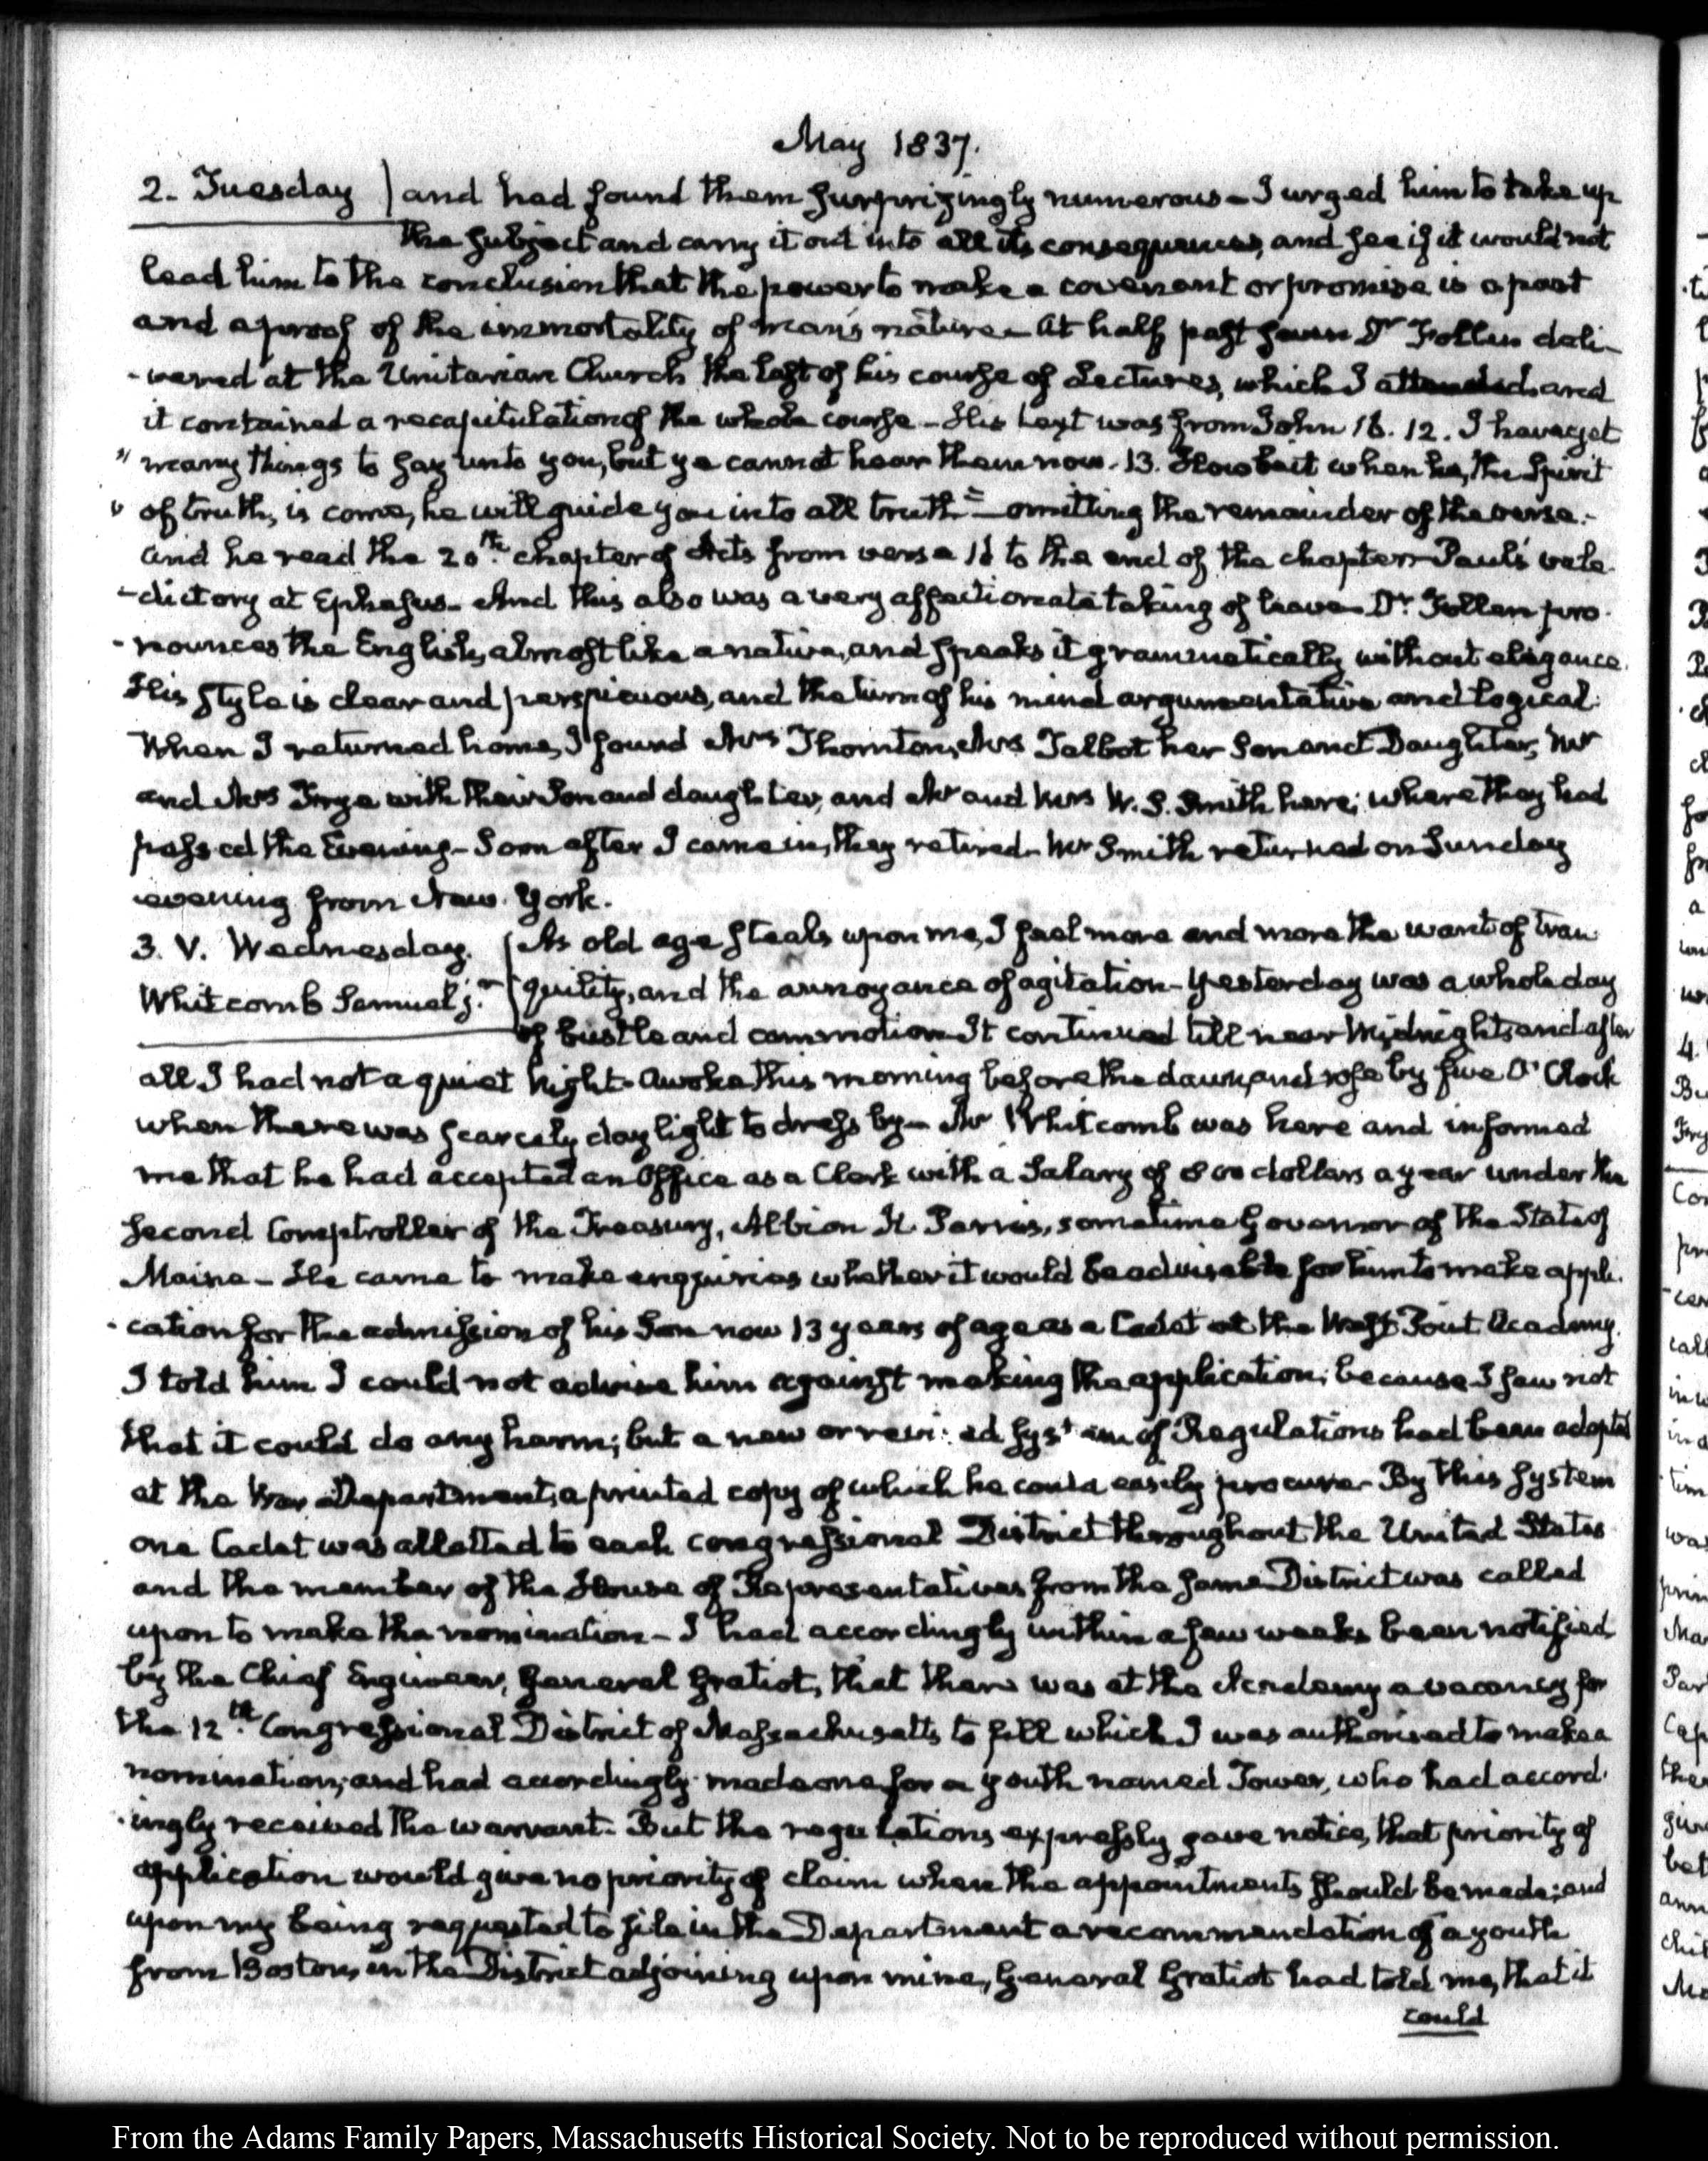 May 1837.
2. Tuesday } and had found them surprizingly numerous – I urged him to take up
the subject and carry it out into all its consequences, and see if it would not
lead him to the conclusion that the power to make a covenant or promise is a part
and a proof of the immortality of man's nature – At half past seven Dr Follen deli-
-vered at the Unitarian Church the last of his course of Lectures, which I attended and
it contained a recapitulation of the whole course – His text was from John 16. 12. I have yet
" many things to say unto you, but ye cannot bear them now. 13. Howbeit when he, the Spirit
" of truth, is come, he will guide you into all truth" – omitting the remainder of the verse. –
and he read the 20th. chapter of Acts from verse 18 to the end of the chapter – Paul's vale-
-dictory at Ephesus – And this also was a very affectionate taking of leave – Dr. Follen pro-
-nounces the English, almost like a native, and speaks it grammatically without elegance.
His style is clear and perspicuous, and the turn of his mind argumentative and logical.
When I returned home, I found Mrs Thornton, Mrs Talbot her Son and Daughter, Mr
and Mrs Frye with their Son and daughter, and Mr and Mrs W. S. Smith here; where they had
passed the Evening – Soon after I came in, they retired – Mr Smith returned on Sunday
evening from New York.
3. V. Wednesday. { As old age steals upon me, I feel more and more the want of tran-
Whitcomb Samuel jr. { quility, and the annoyance of agitation – Yesterday was a whole day
of bustle and commotion – It continued till near Midnight, and after
all I had not a quiet Night – Awoke this morning before the dawn, and rose by five O'Clock
when there was scarcely day light to dress by – Mr Whitcomb was here and informed
me that he had accepted an Office as a Clerk with a Salary of 800 dollars a year under the
second Comptroller of the Treasury, Albion K. Parris, sometime Governor of the State of
Maine – He came to make enquiries whether it would be advisable for him to make appli-
-cation for the admission of his Son now 13 years of age as a Cadet at the West Point Academy.
I told him I could not advise him against making the application; because I saw not
that it could do any harm; but a new or revised system of Regulations had been adopted
at the War Department, a printed copy of which he could easily procure – By this system
one Cadet was allotted to each congressional District throughout the United States
and the member of the House of Representatives from the same District was called
upon to make the nomination – I had accordingly within a few weeks been notified
by the Chief Engineer, General Gratiot, that there was at the Academy a vacancy for
the 12th. Congressional District of Massachusetts to fill which I was authorised to make a
nomination; and had accordingly made one for a youth named Tower, who had accord-
-ingly received the warrant. But the regulations expressly gave notice, that priority of
application would give no priority of claim when the appointments should be made; and
upon my being requested to file in the Department a recommendation of a youth
from Boston, in the District adjoining upon mine, General Gratiot had told me, that it
could
From the Adams Family Papers, Massachusetts Historical Society. Not to be reproduced without permission.